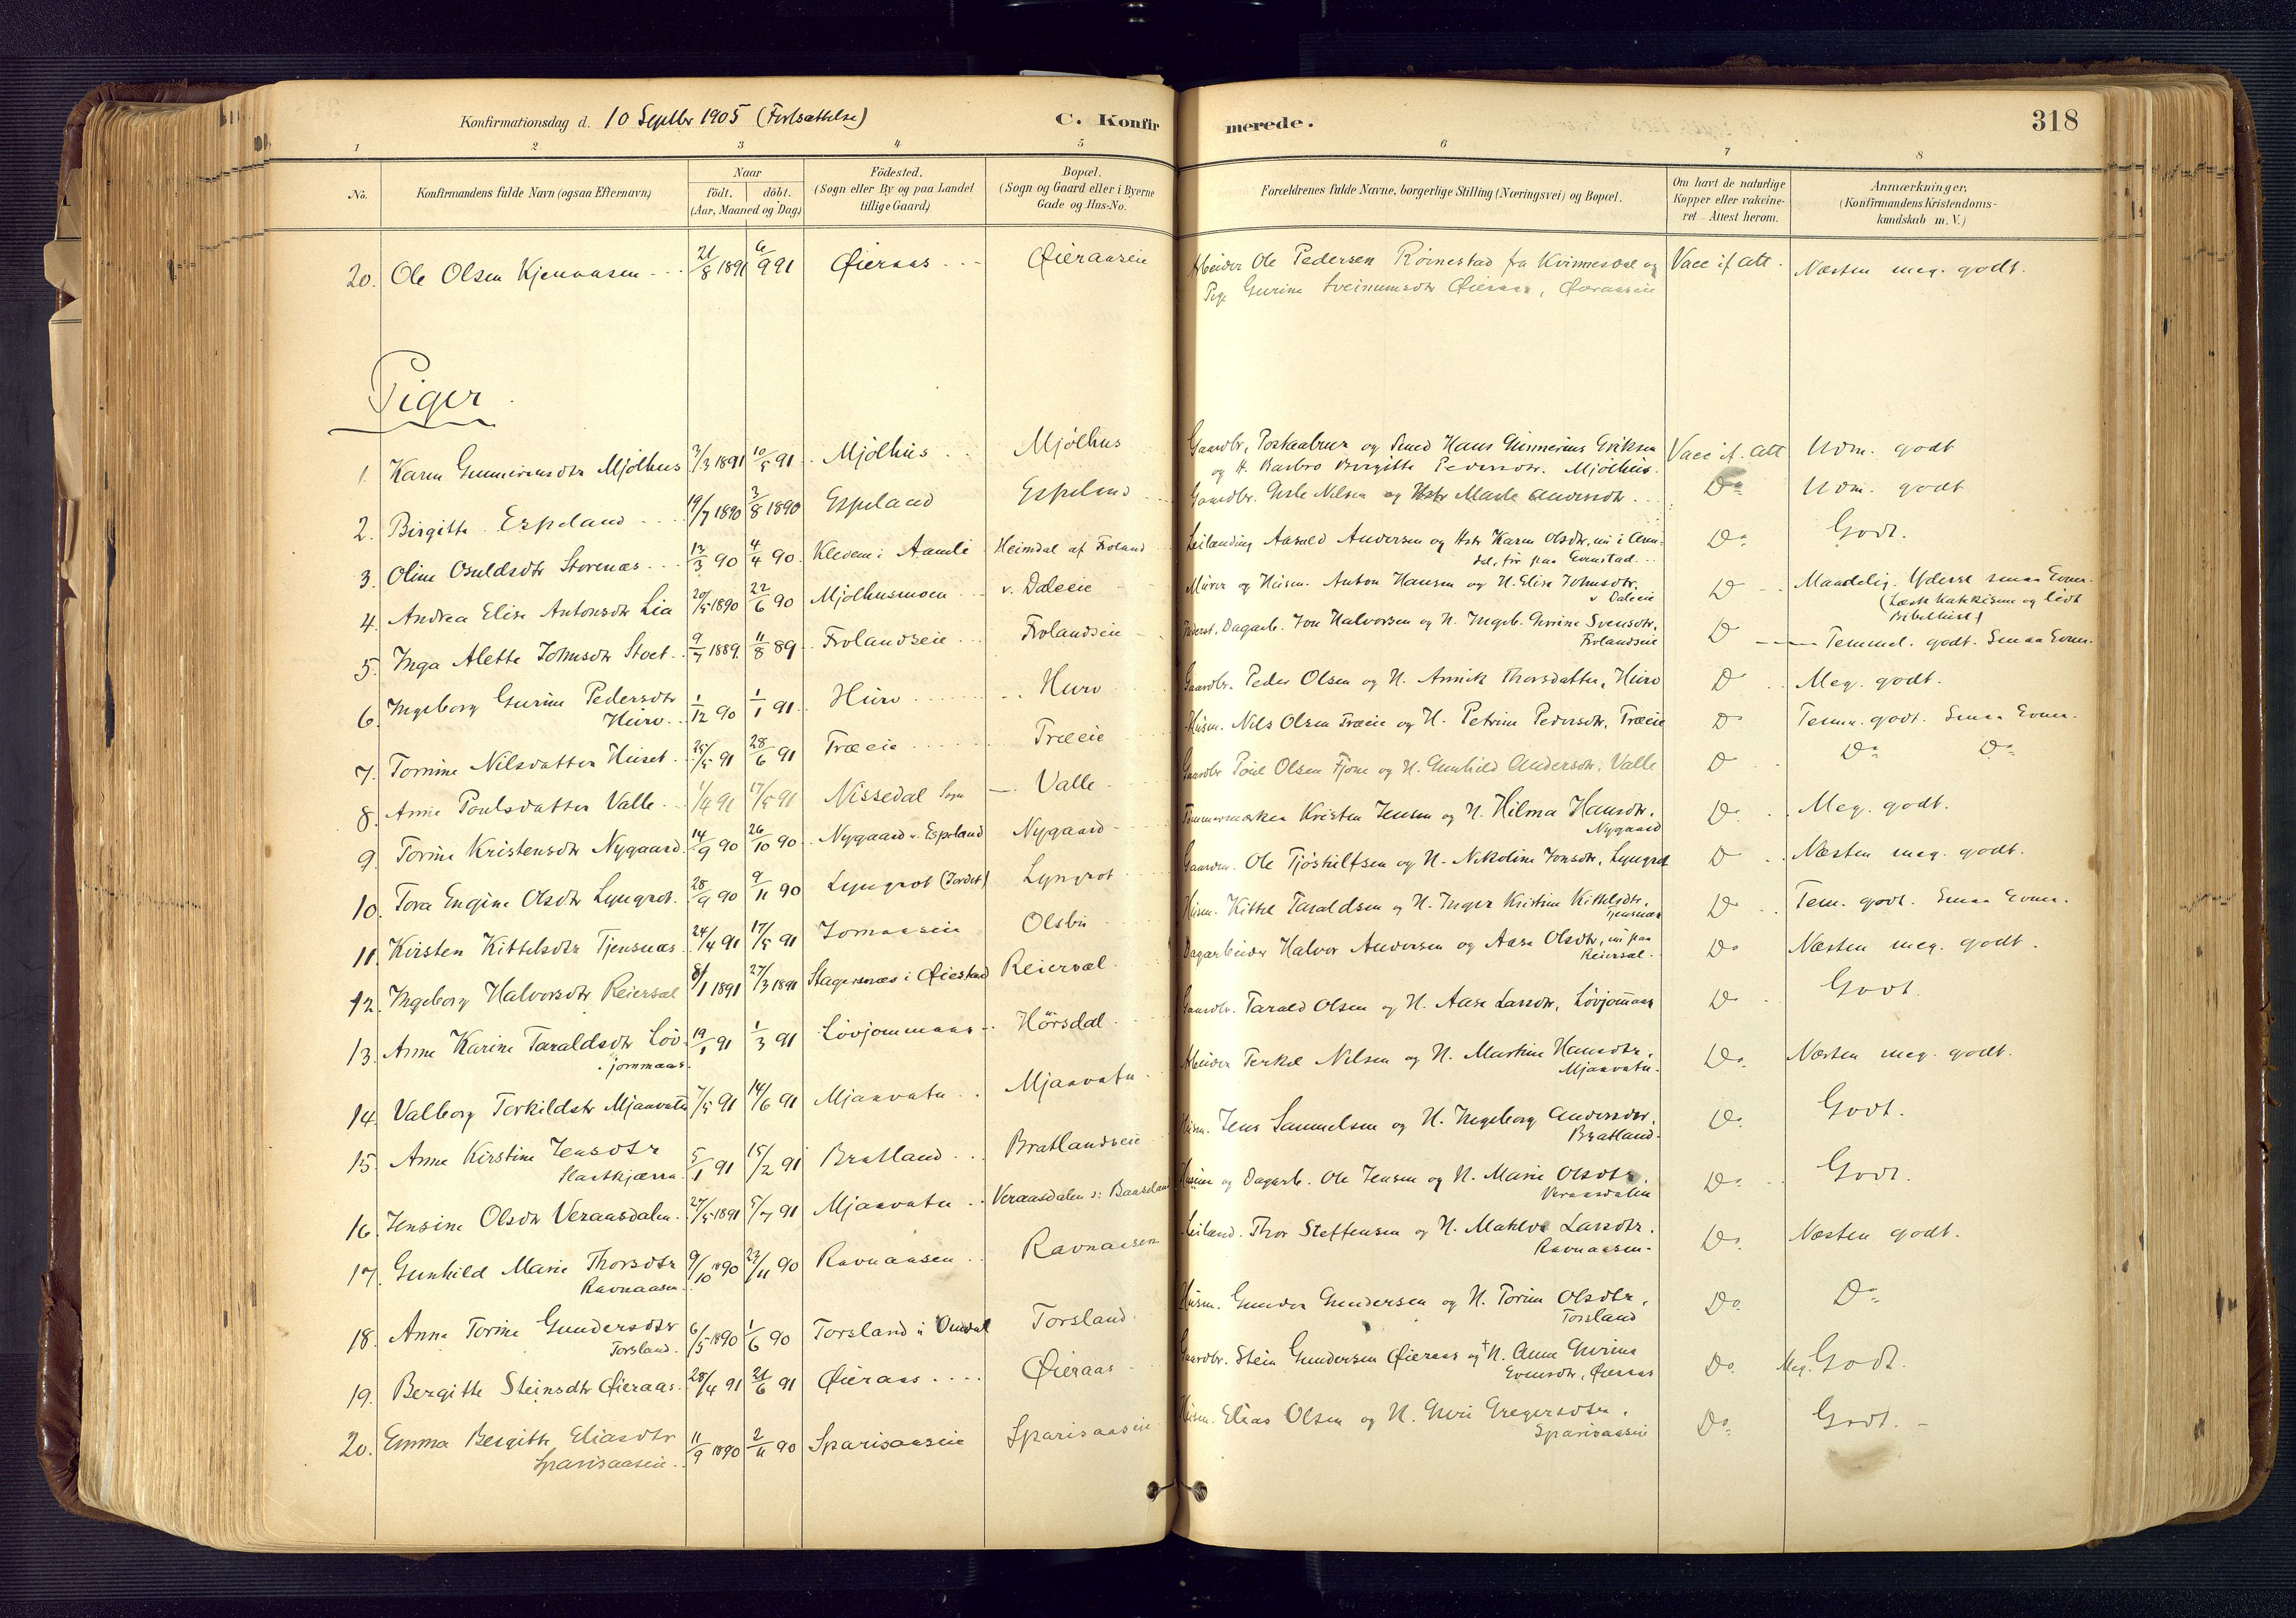 Konfirmationsdag d. 10 Septbr 1905 (Fortsættelse) C. Konfirmerede. 318
1 2 3 4 5 6 7 8
No. Konfirmandens fulde Navn (ogsaa Efternavn) Naar født. døbt. (Aar, Maaned og Dag) Födested. (Sogn eller By og paa Landet tillige Gaard) Bopæl. (Sogn og Gaard eller i Byerne Gade og Hus-No. Forældrenes fulde Navne, borgerlige Stilling (Næringsvei) og Bopæl. Om havt de naturlige Kopper eller vakcineret Attest herom. Anmærkninger. (Konfirmandens Kristendomskundskab m. V.)
20. Ole Olsen Kjennaasen 21/8 1891 6/9 91 Øieraas Øieraaseie Arbeider Ole Pedersen Röinestad fra Kvinnesdal og Vacc if att. Næsten meg. godt.
Pige Gurine Sveinumsdtr Øieraas, Øieraaseie
Piger
1. Karen Gunneriusdtr Mjölhus 2/3 1891 10/5 91 Mjölhus Mjölhus Gaardbr, Postaabner og Smed Hans Gunnerius Eriksen Vacc if. att Udm. godt
og H. Barbro Birgitte Pedersdtr. Mjölhus.
2. Birgitte Espeland 19/7 1890 3/8 1890 Espeland Espeland Gaardbr. Gisle Nilsen og Hstr Marte Andersdtr. Do Udm. godt
3. Oline Osuldsdtr Storenæs 13/3 90 4/4 90 Kleven i Aamli Heimdal af Froland Leilænding Aasuld Andersen og Hstr Karen Olsdtr, nu i Arendal, før paa Evenstad. Do Godt.
4. Andrea Elise Antonsdtr Lia 20/5 1890 22/6 90 Mjölhusmoen v. Daleeie Murer og Husm. Anton Hansen og H. Elise Johnsdtr, v Daleeie Do Maadelig. Yderst smaa Evner.
(Læst Katekisme og lidt Bibelhist)
5. Inga Alette Johnsdtr Stoet 9/7 1889. 11/8 89 Frolandseie Frolandseie Føderst, Dagarb. Jon Halvorsen og H. Ingeb. Gurine Svensdtr, Frolandseie Do Temmel. godt. Smaa Evner.
6. Ingeborg Gurine Pedersdtr Huro 1/12 90 1/1 91 Huro Huro Gaardbr. Peder Olsen og H. Annik Thorsdatter, Huro Do Meg. godt.
7. Tomine Nilsdatter Huset 25/5 91 28/6 91 Træeie Træeie Husm. Nils Olsen Træeie og H. Petrine Pedersdtr, Træeie Do Temm. godt. Smaa Evner.
8. Anne Poulsdatter Valle 1/4 91 17/5 91 Nissedal Sogn Valle Gaardbr Poul Olsen Fjone og H. Gunhild Andersdtr, Valle Do Do Do
9. Torine Kristensdtr Nygaard 14/9 90 26/10 90 Nygaard u. Espeland Nygaard Tømmermærker Kristen Jensen og H. Hilma Hansdtr, Nygaard Do Meg. godt.
10. Tora Engine Olsdtr Lyngrot 28/9 90 9/11 90 Lyngrot (Jordet) Lyngrot Gaardm. Ole Tjöstulfsen og H. Nikoline Jonsdtr, Lyngrot Do Næsten meg. godt.
11. Kirsten Kittelsdtr Tjensnæs 24/4 91 17/5 91 Jomaaseie Olsbu Husm. Kittel Taraldsen og H. Inger Kirstine Kittelsdtr, Tjensnæs Do Tem. godt. Smaa Evner.
12. Ingeborg Halvorsdtr Reiersæl 8/1 1891 27/3 1891 Stagersnæs i Øiestad Reiersæl Dagarbeider Halvor Andersen og Aase Olsdtr, nu paa Reiersæl Do Næsten meg. godt.
13. Anne Karine Taraldsdtr Lövjommaas 19/1 91 1/3 91 Lövjommaas Hörsdal Gaardbr. Tarald Olsen og H. Aase Larsdtr, Lövjommaas Do Godt.
14. Valborg Torkildstr Mjaavatn 7/5 91 14/6 91 Mjaavatn Mjaavatn Arbeider Terkel Nilsen og H. Martine Hansdtr, Mjaavatn Do Næsten meg. godt.
15. Anne Kirstine Jensdtr Slaatkjærn 5/1 91 15/2 91 Bratland Bratlandseie Husm. Jens Samuelsen og H. Ingeborg Andersdtr, Bratland Do Godt.
16. Jensine Olsdtr Veraasdalen 27/5 1891 5/7 91 Mjaavatn Veraasdalen Husm og Dagarb. Ole Jensen og H. Marie Olsdtr, Veraasdalen Do Godt.
17. Gunhild Marie Thorsdtr Ravnaasen 9/10 1890 23/11 90 Ravnaasen Ravnaasen Leiland. Thor Steffensen og H. Mahlve Larsdtr. Ravnaasen Do Næsten godt.
18. Anne Torine Gundersdtr Torsland 6/5 1890 1/6 90 Torsland Torsland Husm. Gunder Gundersen og H. Torine Olsdtr, Torsland Do Do
19. Bergitte Steinsdtr Øieraas 28/4 91 21/6 91 Øieraas Øieraas Gaardbr. Stein Gundersen Øieraas og † H. Anne Gurine Evensdtr, Øieraas Do Meg. Godt.
20. Emma Bergitte Eliasdtr Sparisaaseie 11/9 1890 2/11 90 Sparisaaseie Sparisaaseie Husm. Elias Olsen og H. Guri Gregersdtr, Sparisaaseie Do Godt.